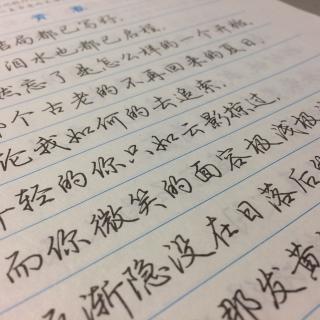 青春
结局都已写好,
泪水也都已启程,
忘了是怎么样的一个开始,
个古老的不再回来的夏日.
论我如何的去追索,
年轻的你只如云影掠过,
而你微笑的面容极浅极
渐隐没在日落后的
那发黄